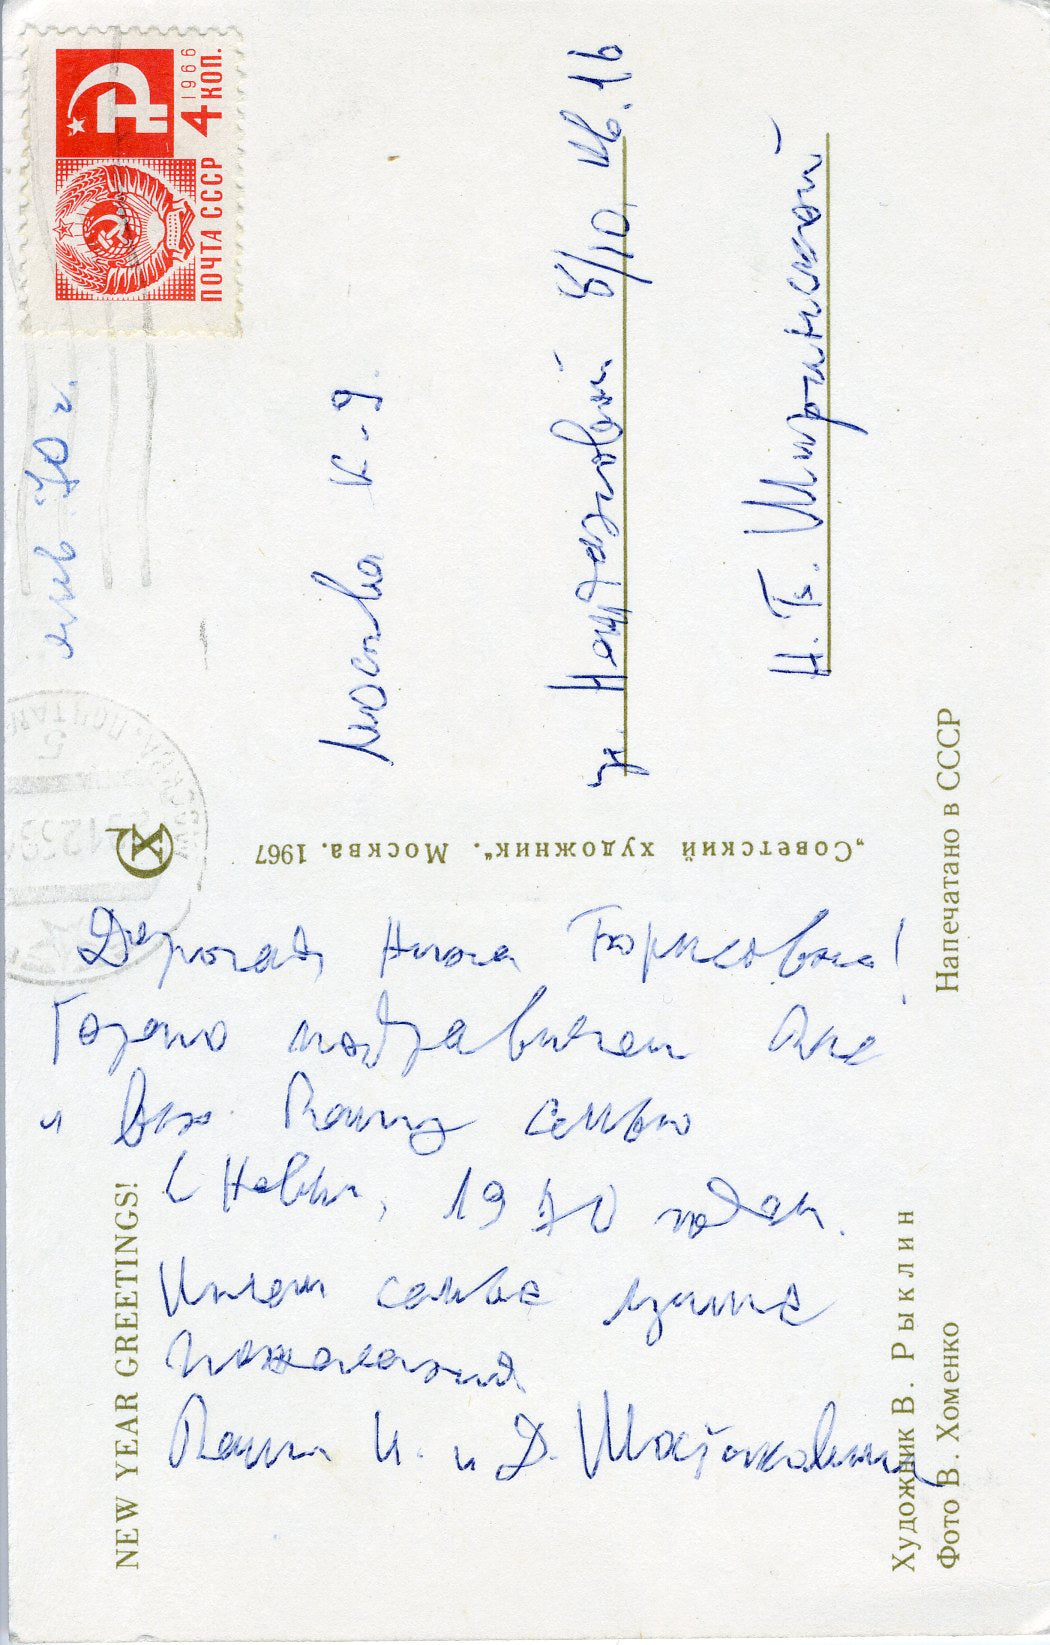 ПОЧТА СССР
1966
4 КОП.
янв 70 г.
Москва К-9.
ул. Неждановой 8/10 кв. 16
Н. Б. Ширинской
„Советский художник“. Москва. 1967
Дорогая Нина Борисовна!
Горячо поздравляем Вас
и всю Вашу семью
С Новым, 1970 годом.
Шлем самые лучшие
пожелания
Ваши И. и Д. Шостаковичи
NEW YEAR GREETINGS!
Напечатано в СССР
Художник В. Рыклин
Фото В. Хоменко